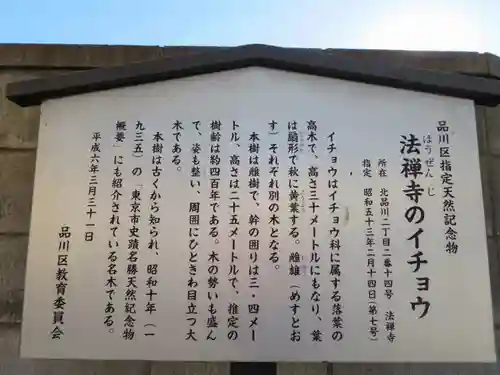 品川区指定天然記念物
ほうぜんじ
法禅寺のイチョウ
所在 北品川二丁目二番十四号 法禅寺
指定 昭和五十三年二月十四日(第七号)
イチョウはイチョウ科に属する落葉の
高木で、高さ三十メートルにもなり、葉
は扇形で秋に黄葉する。雌雄(めすとお
す)それぞれ別の木となる。
本樹は雌樹で、幹の囲りは三・四メー
トル、高さは二十五メートルで、推定の
樹齢は約四百年である。木の勢いも盛ん
で、姿も整い、周囲にひときわ目立つ大
木である。
本樹は古くから知られ、昭和十年(一
九三五)の「東京市史蹟名勝天然記念物
概要」にも紹介されている名木である。
平成六年三月三十一日
品川区教育委員会